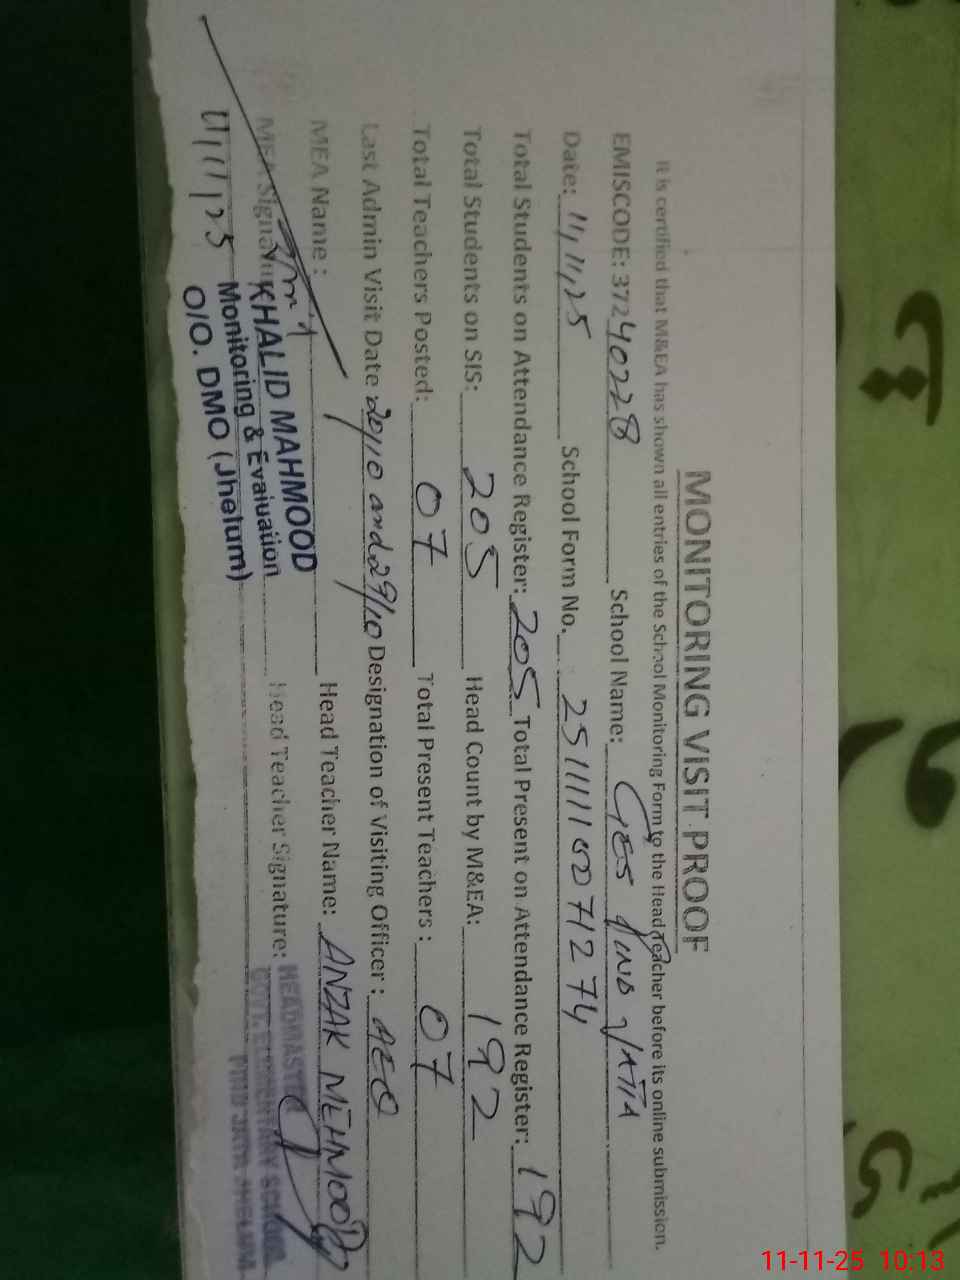 MONITORING VISIT PROOF
It is certified that M&EA has shown all entries of the School Monitoring Form to the Head Teacher before its online submission.
EMISCODE: 37240228 School Name: GES PIND JATA
Date: 11,11,25 School Form No. 25111110071274
Total Students on Attendance Register: 205 Total Present on Attendance Register: 192
Total Students on SIS: 205 Head Count by M&EA: 192
Total Teachers Posted: 07 Total Present Teachers: 07
Last Admin Visit Date 20/10 and 29/10 Designation of Visiting Officer: AEO
MEA Name: Head Teacher Name: ANZAK MEHMOOD
MEA Signature KHALID MAHMOOD Head Teacher Signature: HEADMASTER
Monitoring & Evaluation GOVT. ELEMENTARY SCHOOL
11/11/25 O/O. DMO (Jhelum) PIND JATA JHELUM
11-11-25 10:13